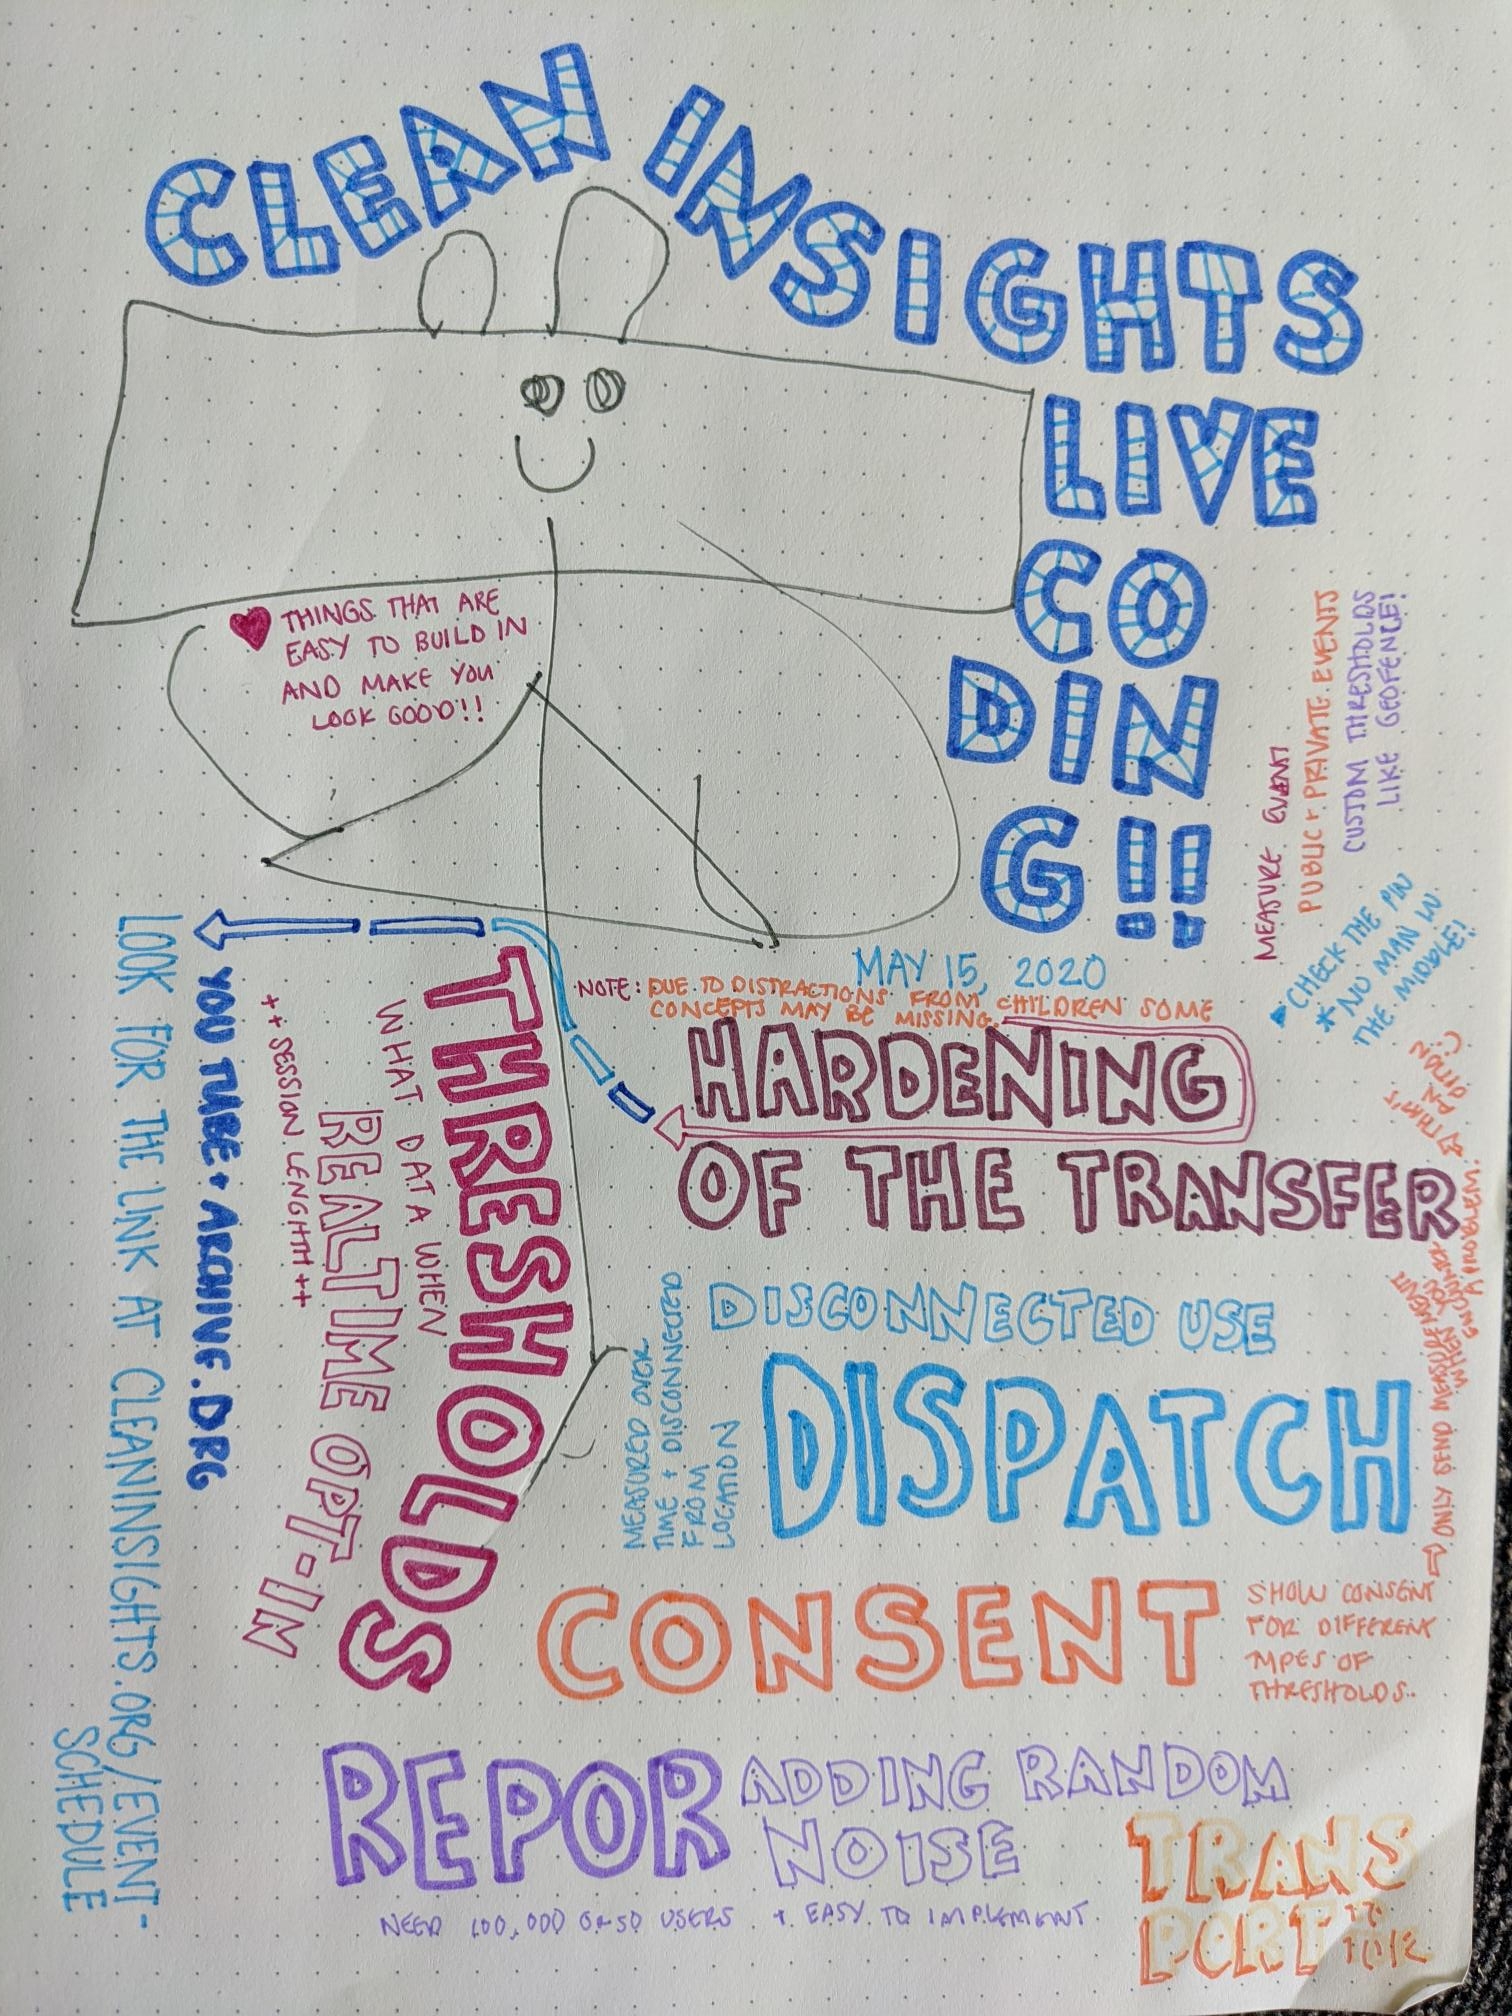 CLEAN INSIGHTS
LIVE
CO
DIN
G!!
♥ THINGS THAT ARE
EASY TO BUILD IN
AND MAKE YOU
LOOK GOOD!!
MEASURE EVENT
PUBLIC + PRIVATE EVENTS
CUSTOM THRESHOLDS
LIKE GEOFENCE!
CHECK THE PIN
* NO MAN IN
THE MIDDLE!
MAY 15, 2020
NOTE: DUE TO DISTRACTIONS FROM CHILDREN SOME
CONCEPTS MAY BE MISSING.
HARDENING
OF THE TRANSFER
YOU TUBE + ARCHIVE.ORG
LOOK FOR THE LINK AT CLEANINSIGHTS.ORG/EVENT-
SCHEDULE
THRESHOLDS
WHAT DATA WHEN
REALTIME OPT-IN
++ SESSION LENGHTH ++
DISCONNECTED USE
DISPATCH
MEASURED OVER
TIME + DISCONNECTED
FROM
LOCATION
CONSENT
SHOW CONSENT
FOR DIFFERENT
TYPES OF
THRESHOLDS.
ONLY SEND MEASUREMENT
WHEN
A PROBLEM.
REPOR
ADDING RANDOM
NOISE
NEED 100,000 OR SO USERS + EASY TO IMPLEMENT
TRANS
PORT